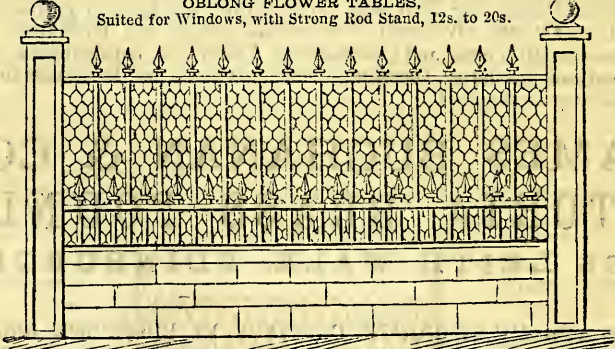 OBLONG FLOWER TABLES,
Suited for Windows, with Strong Rod Stand, 12s. to 20s.